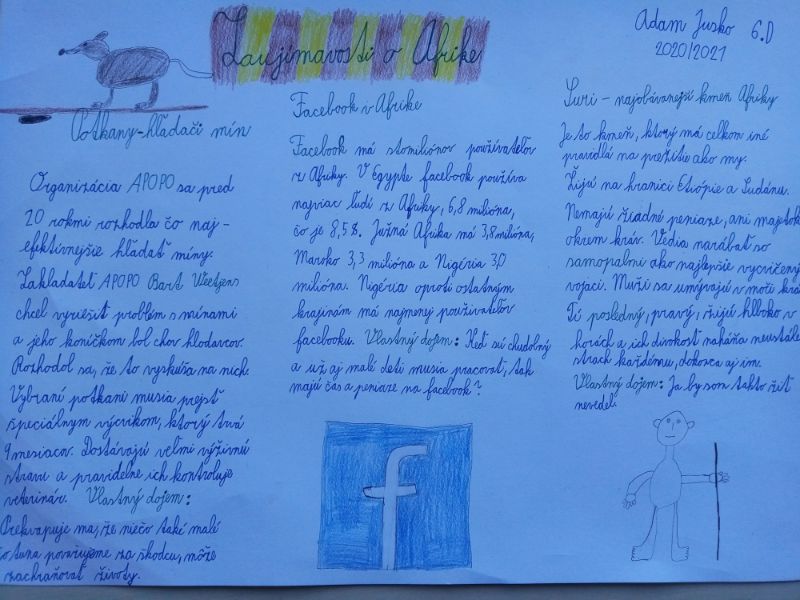 Zaujímavosti o Afrike
Adam Jusko 6.D
2020/2021
Potkany-hľadači mín
Organizácia APOPO sa pred
20 rokmi rozhodla čo naj-
efektívnejšie hľadať míny.
Zakladateľ APOPO Bart Weetjens
chcel vyriešiť problém s mínami
a jeho koníčkom bol chov hlodavcov.
Rozhodol sa, že to vyskúša na nich.
Vybraní potkani musia prejsť
špeciálnym výcvikom, ktorý trvá
9 mesiacov. Dostávajú veľmi výživnú
stravu a pravidelne ich kontroluje
veterinár. Vlastný dojem:
Prekvapuje ma, že niečo také malé
čo tuna považujeme za škodcu, môže
zachraňovať životy.
Facebook v Afrike
Facebook má stomiliónov používateľov
z Afriky. V Egypte facebook používa
najviac ľudí z Afriky, 6,8 milióna,
čo je 8,5%. Južná Afrika má 3,8 milióna,
Maroko 3,3 milióna a Nigéria 3,0
milióna. Nigéria oproti ostatným
krajinám má najmenej používateľov
facebooku. Vlastný dojem: Keď sú chudobný
a už aj malé deti musia pracovať, tak
majú čas a peniaze na facebook?
f
Suri - najobávanejší kmeň Afriky
Je to kmeň, ktorý má celkom iné
pravidlá na prežitie ako my.
Žijú na hranici Etiópie a Sudánu.
Nemajú žiadné peniaze, ani majetok
okrem kráv. Vedia narábať so
samopalmi ako najlepšie vycvičený
vojaci. Muži sa umývajú v moči
Tí posledný, pravý, žijú hlboko v
horách a ich divokosť naháňa neustále
strach každému, dokonca aj im.
Vlastný dojem: Ja by som takto žiť
nevedel.